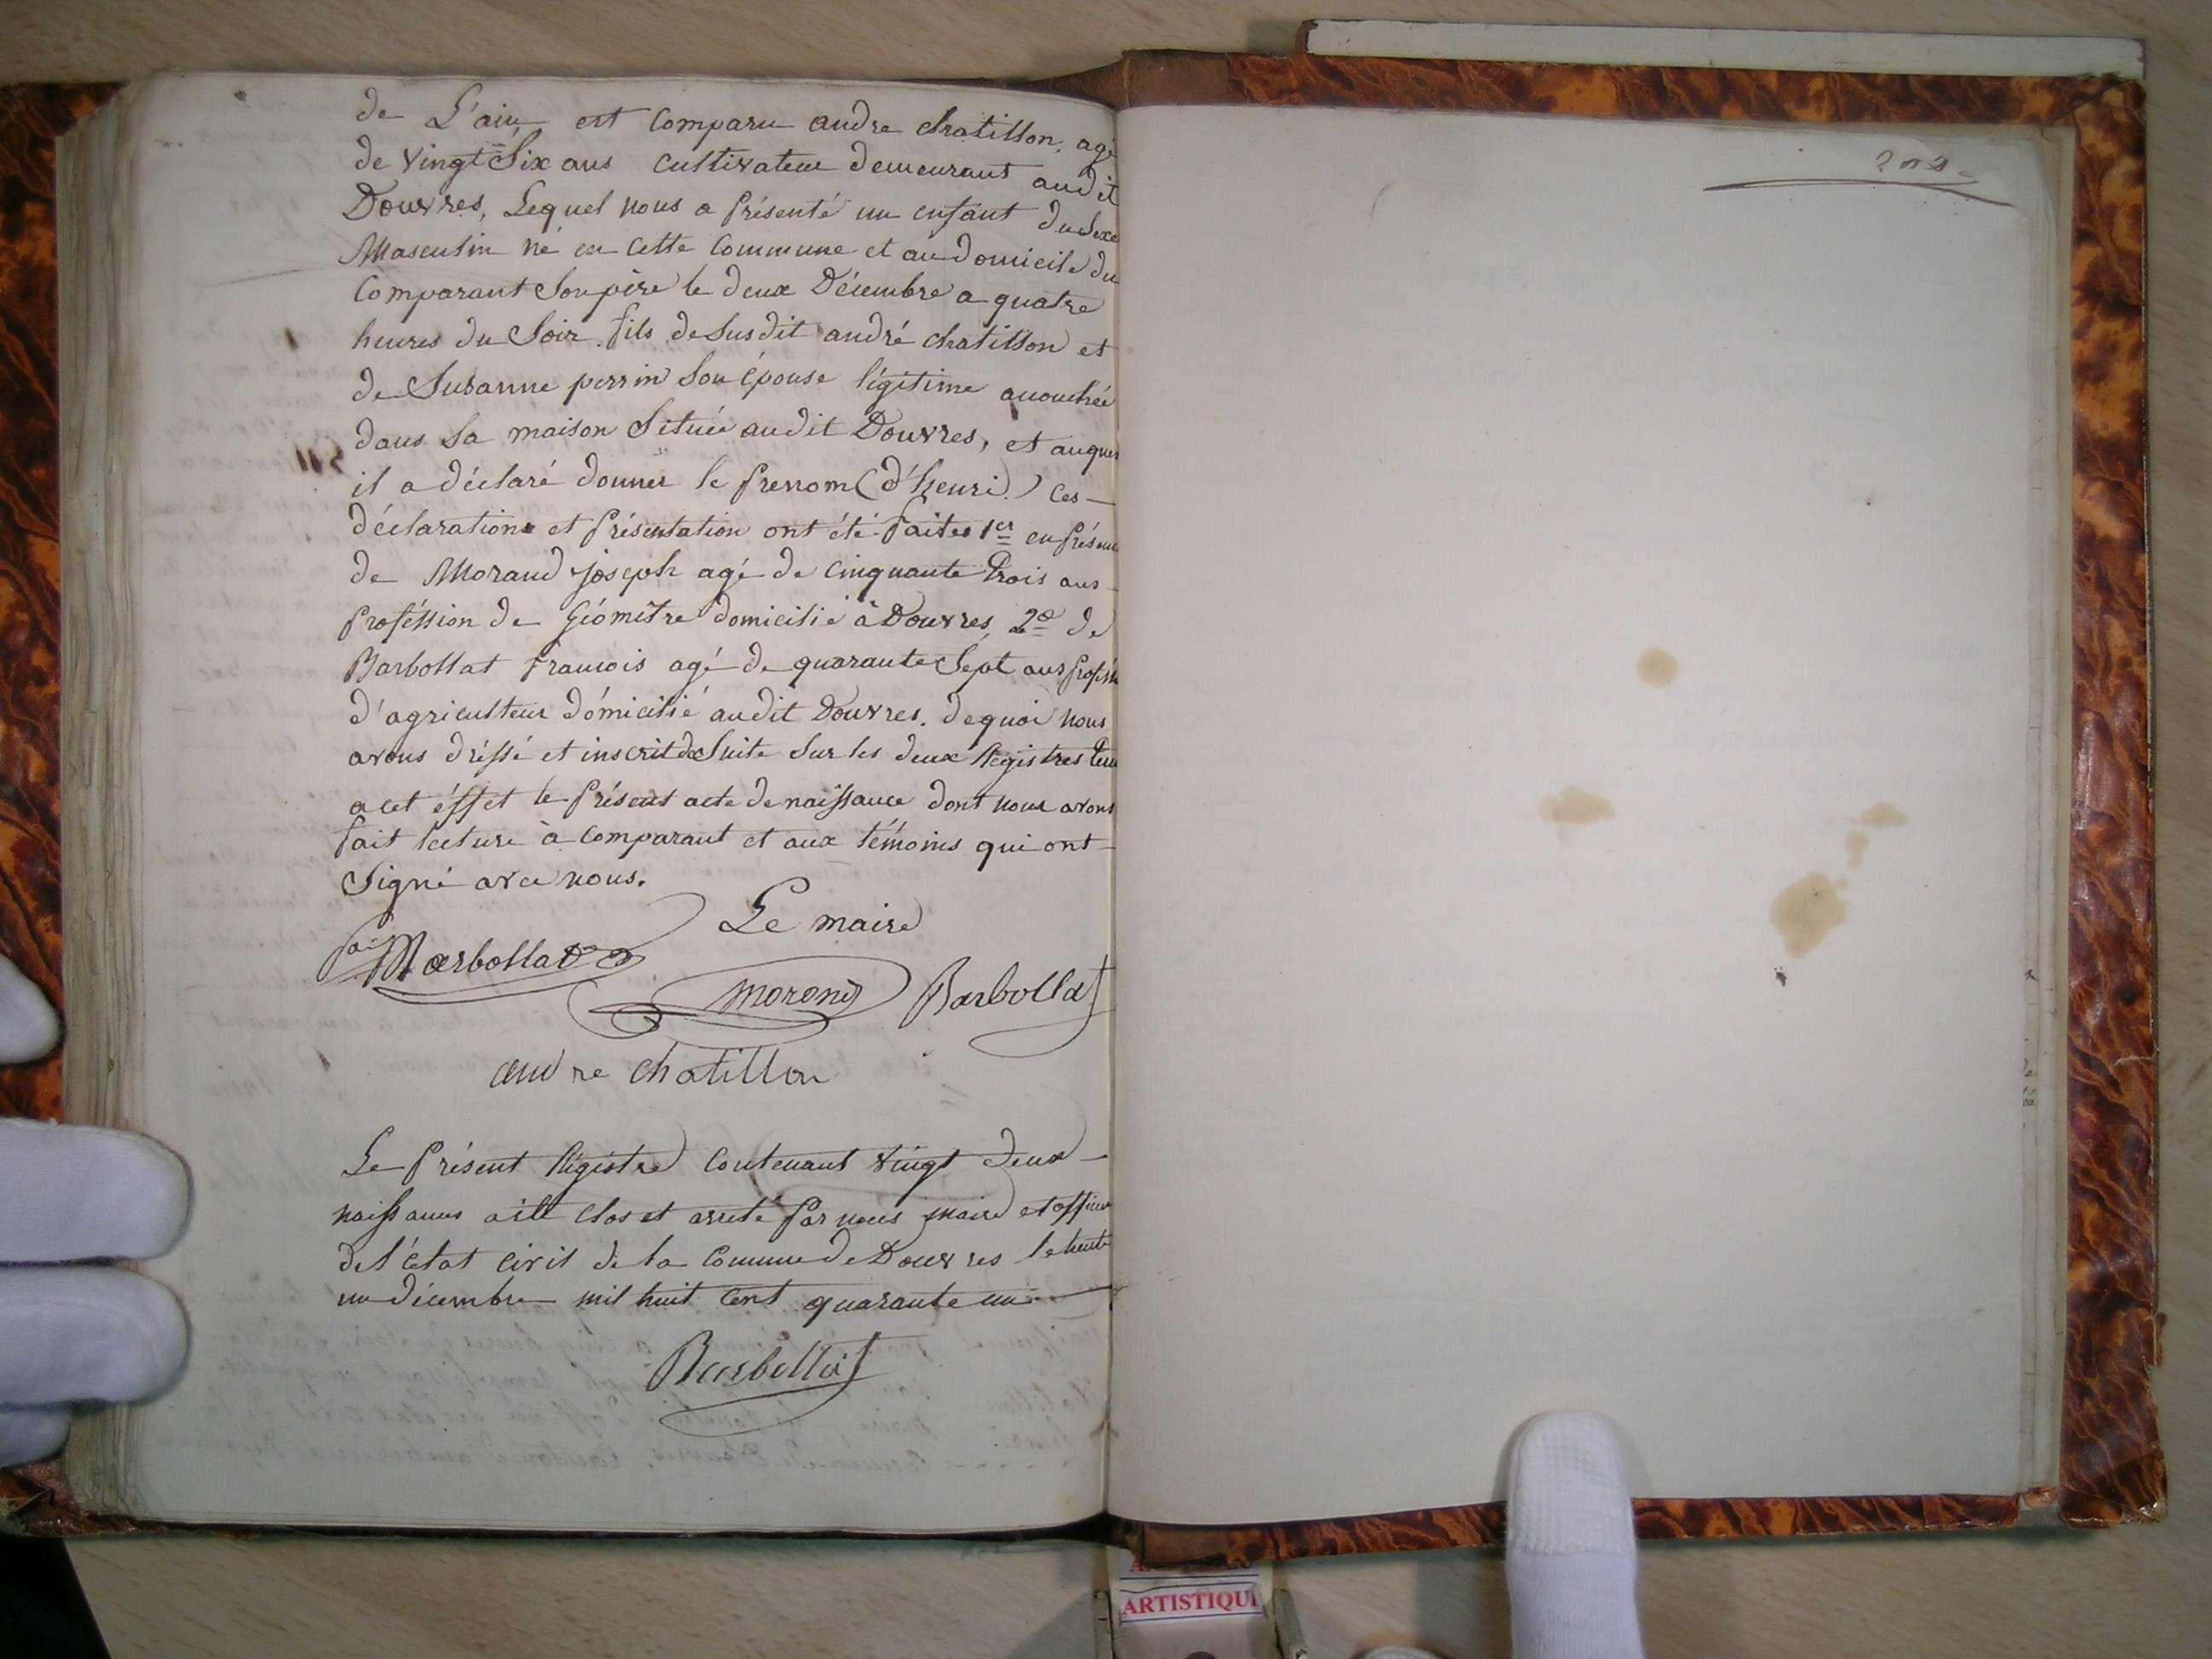 de L'ain est Comparu andre chatillon, agé
de vingt Six ans cultivateur demeurant audit
Douvres, Lequel nous a présenté un enfant du Sexe
Masculin né en cette Commune et au domicile du
Comparant Son père le deux Décembre a quatre
heures du Soir. fils de Susdit andré chatillon et
de Susanne perrin Son épouse légitime accouchée
dans Sa maison Située audit Douvres, et auquel
il a déclaré donner le prenom (d'henri.) Ces
déclarations et présentation ont été faites 1er en présence
de Morand joseph agé de Cinquante trois ans
proféssion de géomètre domicilié à Douvres, 2e de
Barbollat francois agé de quarante Sept ans
d'agriculteur dómicilié audit Douvres. dequoi nous
avons dréssé et inscrit de Suite Sur les deux Régistres
a cet éffet le présent acte de naissance dont nous avons
fait lecture à Comparant et aux témoins qui ont
Signé avec nous.
Le maire
Barbollat
morand Barbollat
andre chatillon
Le présent Régistre Contenant vingt deux
naissances a été Clos et arreté par nous maire et officier
de l'état Civil de la Commune de Douvres le trente
un décembre mil huit Cent quarante un
Barbollat
ARTISTIQU